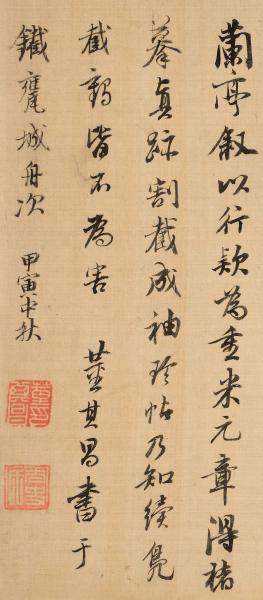 蘭亭敘以行款為重米元章得褚
摹真跡割截成袖珍帖乃知續鳧
截鶴皆不為害 董其昌書于
鐵甕城舟次 甲寅中秋